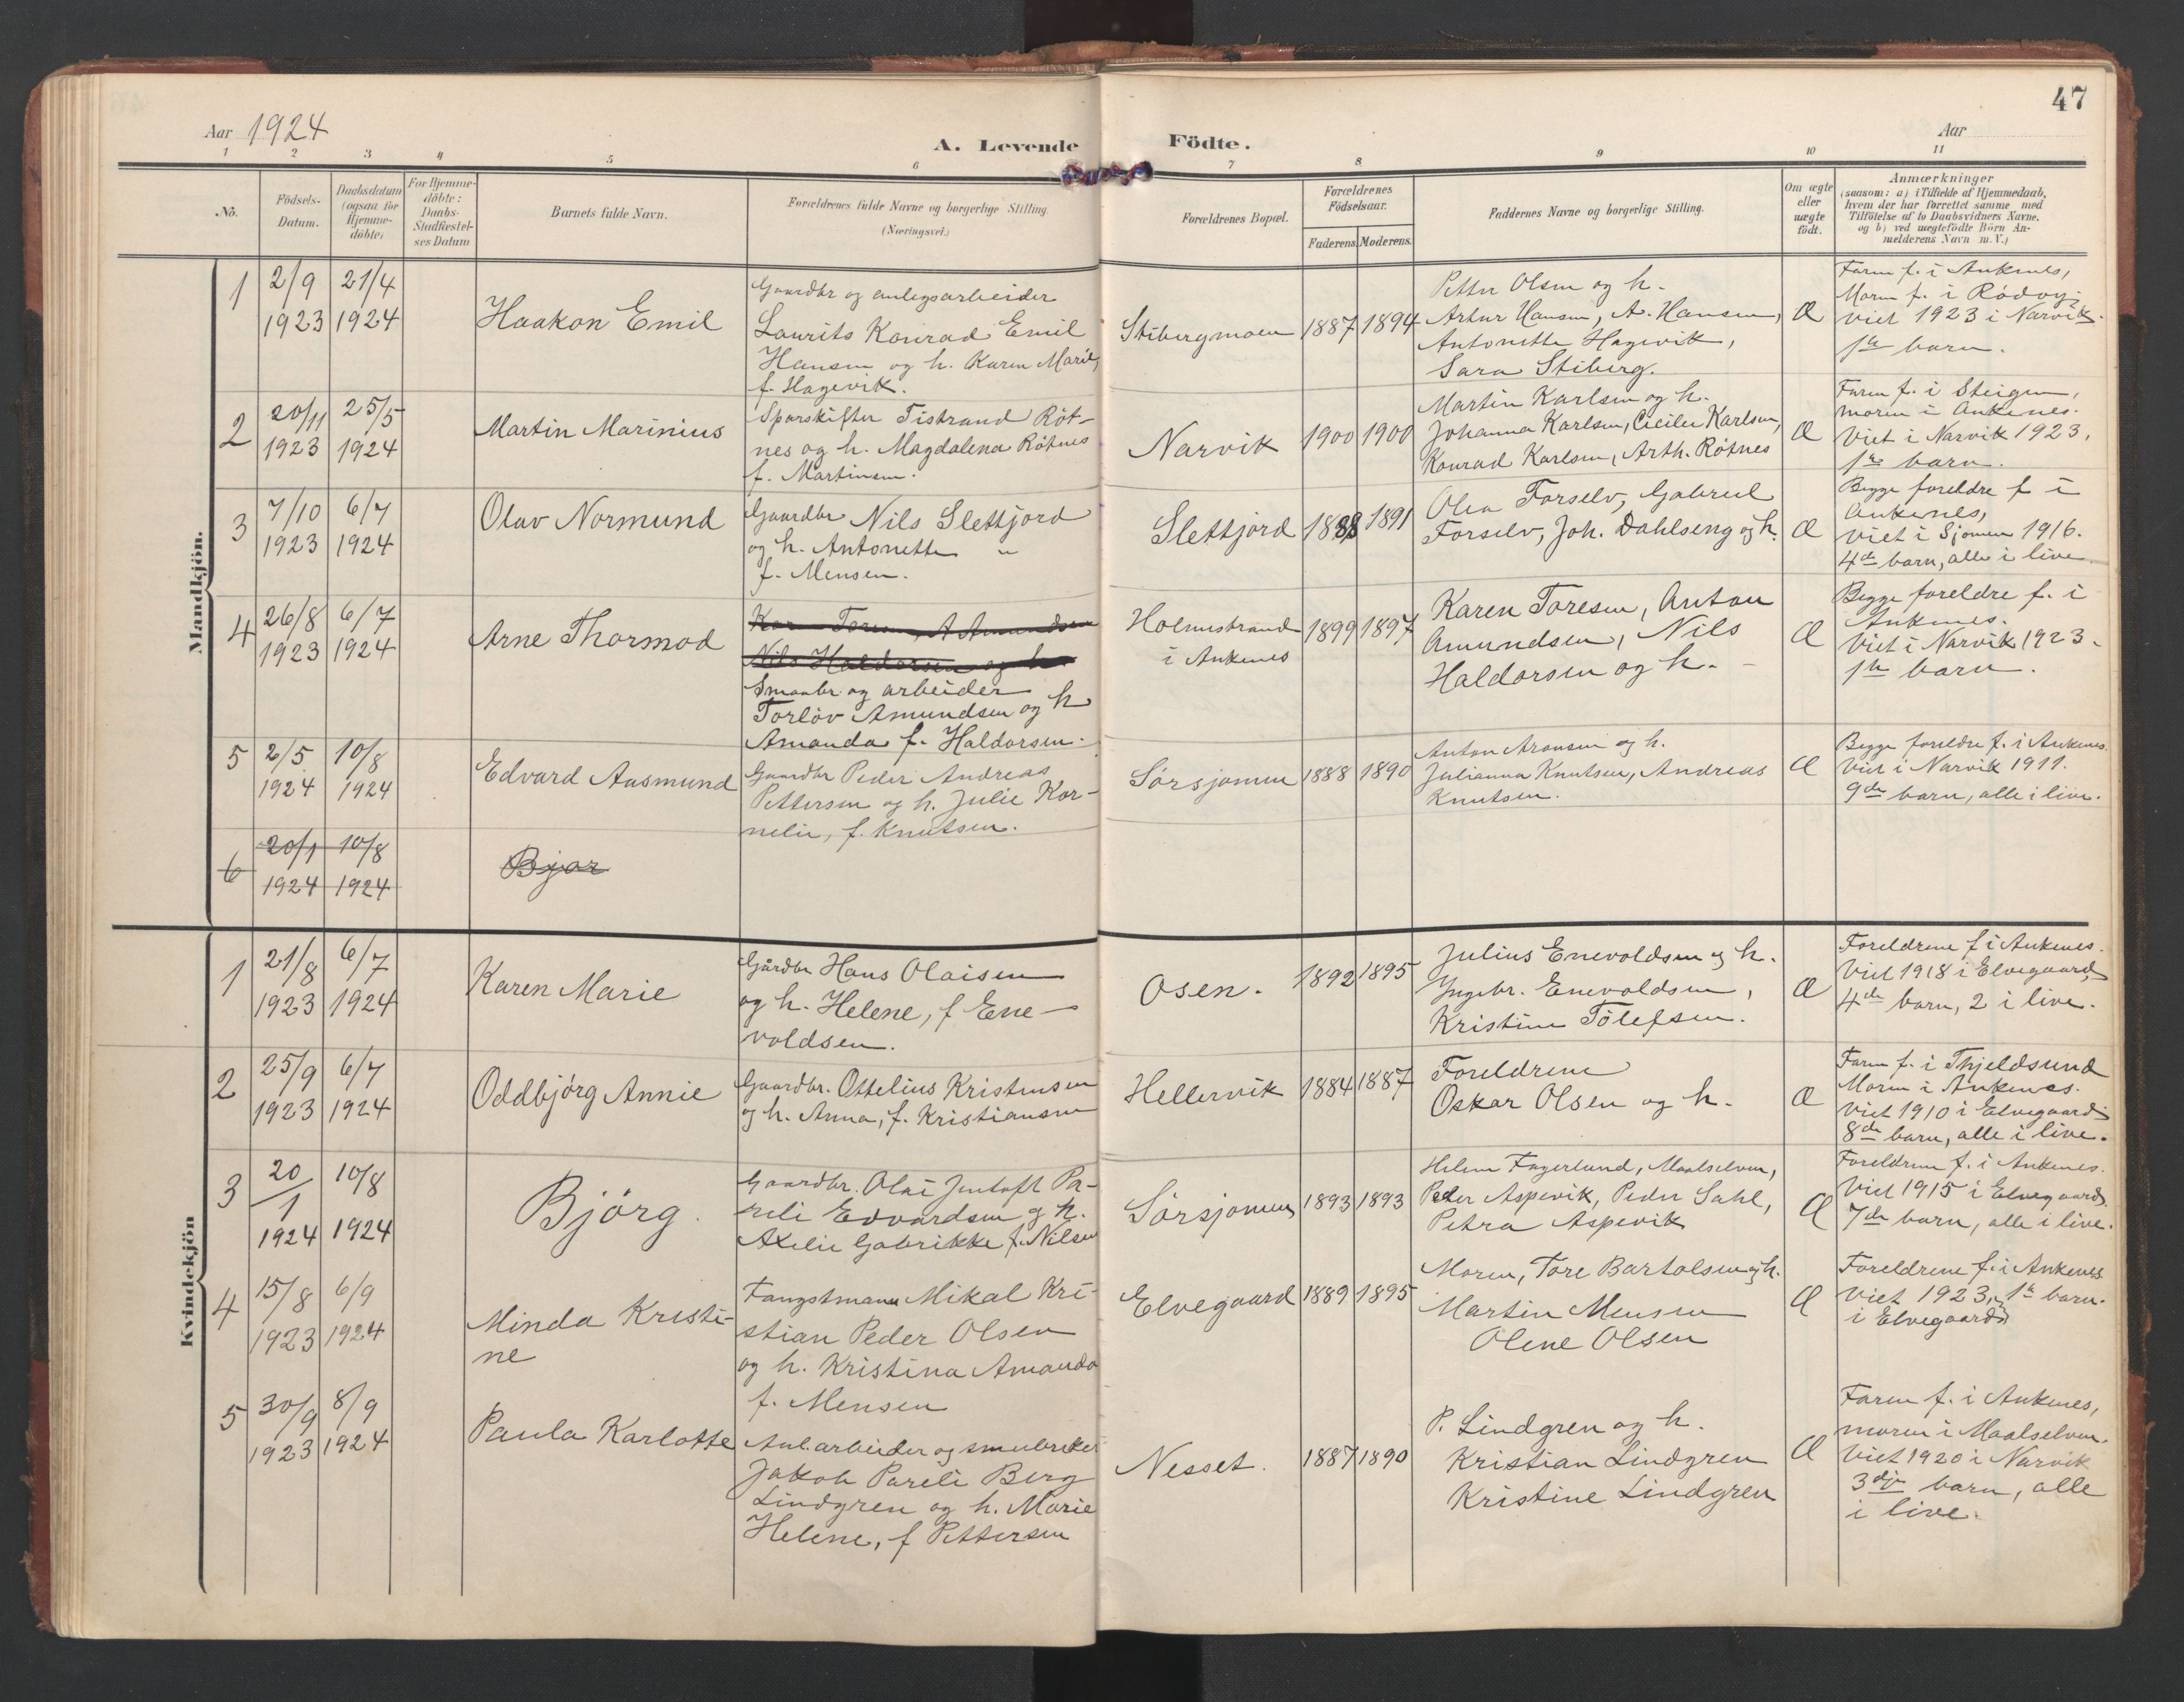 47
Aar 1924
A. Levende
Födte.
Aar
1 2 3 4 5 6 7 8 9 10 11
No.
Födsels-
Datum.
Daabsdatum
(ogsaa for
Hjemme-
döbte)
For Hjemme-
döbte:
Daabs-
Stadfæstel-
ses Datum
Barnets fulde Navn.
Forældrenes fulde Navne og borgerlige Stilling.
(Næringsvei.)
Forældrenes Bopæl.
Forældrenes
Födselsaar.
Faderens. Moderens.
Faddernes Navne og borgerlige Stilling.
Om ægte
eller
uægte
födt.
Anmærkninger
(saasom: a) i Tilfælde af Hjemmedaab,
hvem der har forrettet samme med
Tilföielse af to Daabsvidners Navne,
og b) ved uægtefödte Börn An-
melderens Navn m. V.)
Mandkjön.
1
2/9
1923
21/4
1924
Haakon Emil
Gaardbr og anlegsarbeider
Laurits Konrad Emil
Hansen og h. Karen Marie,
f. Hagevik.
Stibergmoen
1887 1894
Petter Olsen og h.
Artur Hansen, A. Hansen,
Antonette Hagevik,
Sara Stiberg.
Æ
Faren f. i Ankenes,
Moren f. i Rödöy;
viet 1923 i Narvik.
1ste barn.
2
20/11
1923
25/5
1924
Martin Marinius
Sporskifter Tistrand Röt-
nes og h. Magdalena Rötnes
f. Martinsen.
Narvik
1900 1900
Martin Karlsen og h.
Johanna Karlsen, Cecilie Karlsen,
Konrad Karlsen, Arth. Rötnes
Æ
Faren f. i Steigen,
moren i Ankenes.
Viet i Narvik 1923.
1ste barn.
3
7/10
1923
6/7
1924
Olav Normund
Gaardbr Nils Slettjord
og h. Antonette "
f. Mensen.
Slettjord
1888 1891
Olea Forselv, Gabriel
Forselv, Joh. Dahlseng og h.
Æ
Begge foreldre f i
Ankenes,
viet i Sjomen 1916.
4de barn, alle i live
4
26/8
1923
6/7
1924
Arne Thormod
Kar Toresen, A Amundsen
Nils Haldorsen og h.
Smaabr. og arbeider
Torlöv Amundsen og h
Amanda f. Haldorsen.
Holmstrand
i Ankenes
1899 1897
Karen Toresen, Anton
Amundsen, Nils
Haldorsen og h.
Æ
Begge foreldre f. i
Ankenes.
Viet i Narvik 1923.
1ste barn.
5
2/5
1924
10/8
1924
Edvard Aasmund
Gaardbr Peder Andreas
Pettersen og h. Julie Kor-
nelie, f. Knutsen.
Sörsjomen
1888 1890
Anton Aronsen og h.
Julianna Knutsen, Andreas
Knutsen.
Æ
Begge foreldre f. i Ankenes.
Viet i Narvik 1911.
9de barn, alle i live.
6
20/1
1924
10/8
1924
Bjar
Kvindekjön
1
21/8
1923
6/7
1924
Karen Marie
Gårdbr Hans Olaisen
og h. Helene, f Ene-
voldsen.
Osen.
1892 1895
Julius Enevoldsen og h.
Ingebr. Enevoldsen,
Kristine Tölefsen.
Æ
Foreldrene f i Ankenes.
Viet 1918 i Elvegaard,
4de barn, 2 i live.
2
25/9
1923
6/7
1924
Oddbjörg Annie
Gaardbr. Ottelius Kristensen
og h. Anna, f. Kristiansen
Hellervik
1884 1887
Foreldrene
Oskar Olsen og h.
Æ
Faren f. i Thjeldsund
Moren i Ankenes.
Viet 1910 i Elvegaard.
8de barn, alle i live.
3
20/1
1924
10/8
1924
Björg.
Gaardbr. Olai Jentoft Pa-
reli Edvardsen og h.
Axelie Gabrikke f. Nilsen
Sörsjomen
1893 1893
Helene Fagerlund, Maalselven,
Peder Aspevik, Peder Sahl,
Petra Aspevik
Æ
Foreldrene f. i Ankenes.
Viet 1915 i Elvegaard.
7de barn, alle i live.
4
15/8
1923
6/9
1924
Minda Kristi-
ne
Fangstmann Mikal Kri-
stian Peder Olsen
og h. Kristina Amanda
f. Mensen
Elvegaard
1889 1895
Moren, Tore Bartolsen og h.
Martin Mensen
Olene Olsen
Æ
Foreldrene f. i Ankenes
viet 1923, 1ste barn.
i Elvegaard
5
30/9
1923
8/9
1924
Paula Karlotte
Anl.arbeider og smaabruker
Jakob Pareli Berg
Lindgren og h. Marie
Helene, f Pettersen
Nesset.
1887 1890
P. Lindgren og h.
Kristian Lindgren
Kristine Lindgren
Æ
Faren f. i Ankenes,
moren i Maalselven.
Viet 1920 i Narvik
3dje barn, alle
i live.